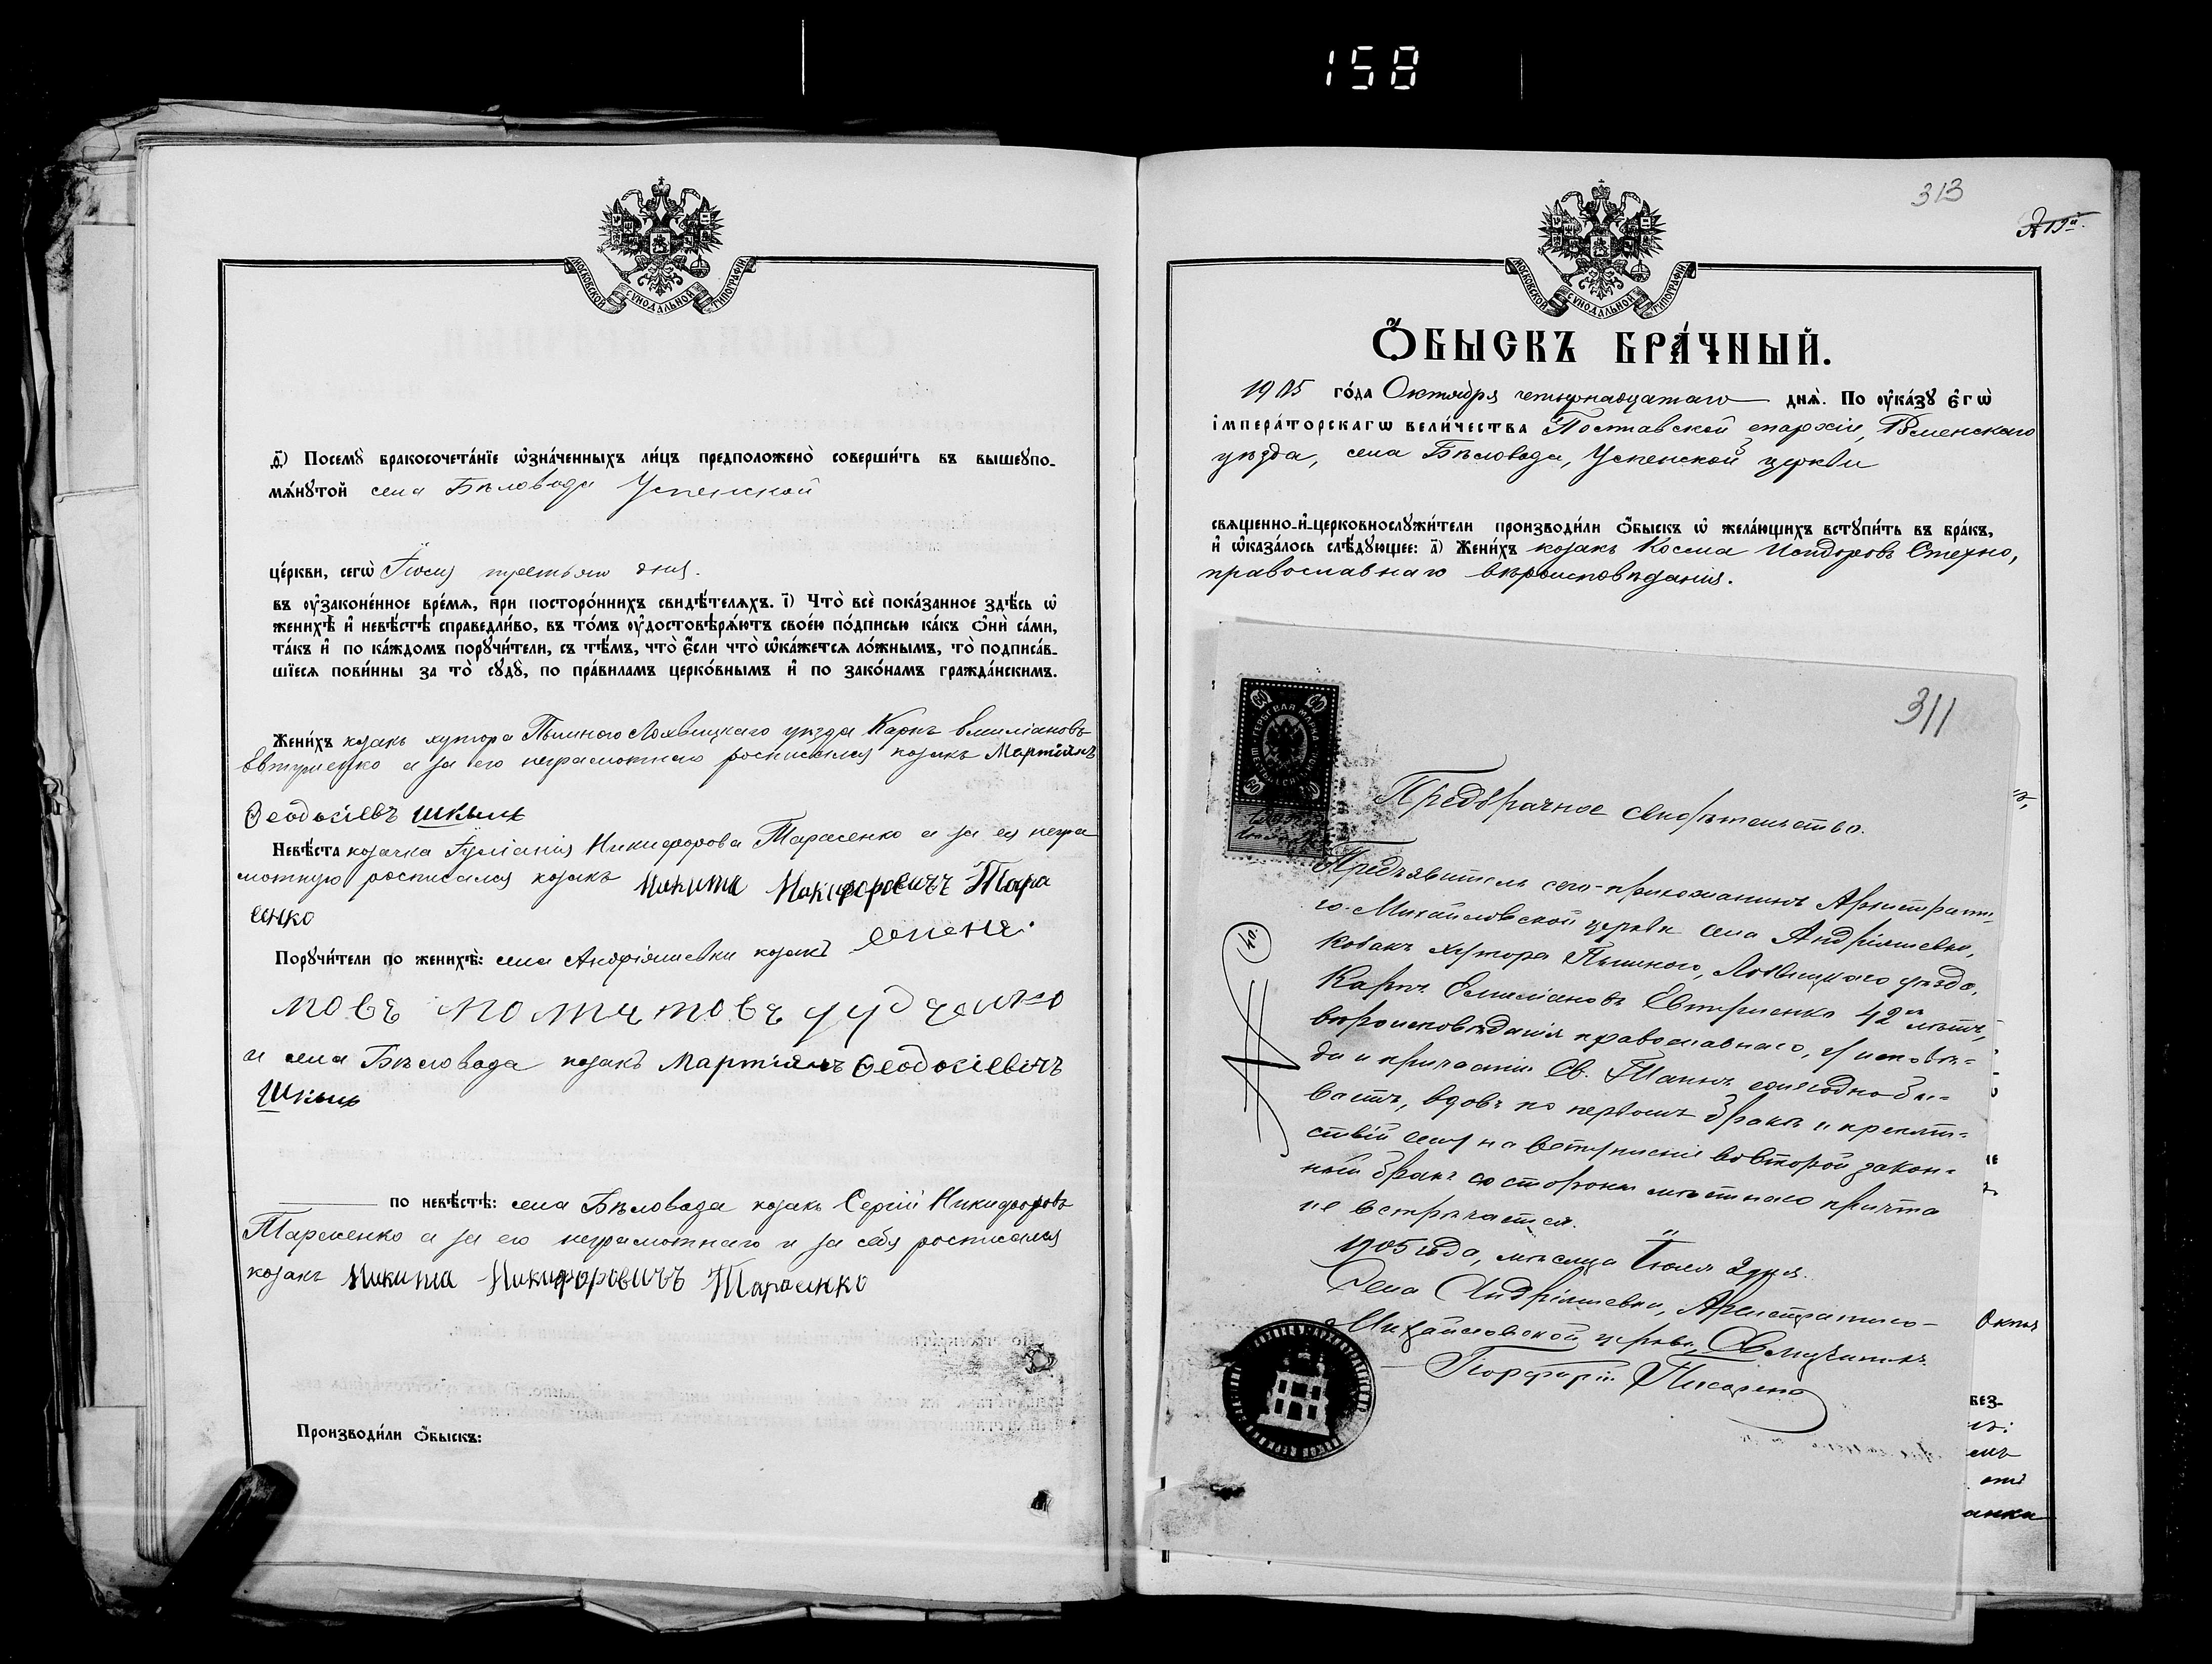 158
МОСКОВСКОЙ СУНОДАЛЬНОЙ ТИПОГРАФІИ
д҃і) Посемꙋ̀ бракосочета́нїе ѡ҆зна́ченныхъ ли́цъ предположено̀ соверши́ть въ вышеꙋпо-
мѧ́нꙋтой села Бѣловода Успенской
це́ркви, сегѡ̀ Іюля третьяго дня.
въ ᲂу҆зако́ненное вре́мѧ, при посторо́ннихъ свидѣ́телѧхъ. і҃) Что̀ всѐ пока́занное здѣ́сь ѡ҆
женихѣ̀ и҆ невѣ́стѣ справедли́во, въ то́мъ ᲂу҆достовѣрѧ́ютъ свое́ю по́дписью ка́къ ѻ҆нѝ са́ми,
та́къ и҆ по ка́ждомъ порꙋчи́тели, съ тѣ́мъ, что̀ є҆́сли что̀ ѡ҆ка́жетсѧ ло́жнымъ, то̀ подписа́в-
шїесѧ пови́нны за то̀ сꙋдꙋ̀, по пра́виламъ церко́внымъ и҆ по зако́намъ гражда́нскимъ.
Жени́хъ козакъ хутора Пышного Лохвицкаго уѣзда Карпъ Емиліановъ
Евтушенко а за его неграмотнаго росписался козакъ Мартіянъ
Ѳеодосіевъ Шкыль
Невѣ́ста козачка Іуліанія Никифорова Тарасенко а за ея негра
мотную росписался козакъ Никита Никифоровичъ Тара
сенко
Порꙋчи́тели по женихѣ̀: села Андріяшевки козакъ
мовъ
и села Бѣловода козакъ Мартіянъ Ѳеодосіевичъ
Шкыль
по невѣ́стѣ: села Бѣловода козакъ Сергій Никифоровъ
Тарасенко а за его неграмотнаго и за себя росписался
козакъ Никита Никифоровичъ Тарасенко
Производи́ли ѻ҆́быскъ:
313
МОСКОВСКОЙ СУНОДАЛЬНОЙ ТИПОГРАФІИ
Ѻ҆́БЫСКЪ БРА́ЧНЫЙ.
1905 го́да Октября четырнадцатаго днѧ̀. По ᲂу҆ка́зꙋ є҆гѡ̀
і҆мпера́торскагѡ вели́чества Полтавской епархіи, Роменскаго
уѣзда, села Бѣловода, Успенской церкви
свѧщенно-и҆-церковнослꙋжи́тели производи́ли ѻ҆́быскъ ѡ҆ жела́ющихъ встꙋпи́ть въ бра́къ,
и҆ ѡ҆каза́лось слѣ́дꙋющее: а҃) Жени́хъ козакъ Косма Исидоровъ Стехно,
православнаго вѣроисповѣданія.
311
ГЕРБОВАЯ МАРКА
60 60
Предбрачное свидѣтельство.
Предъявитель сего-прихожанинъ Архистрати-
го-Михайловской церкви села Андріяшевки,
козакъ хутора Пышного, Лохвицкаго уѣзда,
Карпъ Емиліановъ Евтушенко 42 лѣтъ,
вѣроисповѣданія православнаго, у исповѣ-
ди и причастія Св. Таинъ ежегодно бы-
ваетъ, вдовъ по первомъ бракѣ и препят-
ствій ему на вступленіе во второй закон-
ный бракъ со стороны мѣстнаго причта
не встрѣчается.
1905 года, мѣсяца Іюля 2 дня.
Села Андріяшевки, Архистратиго-
Михайловской церкви, Священникъ
Порфирій Писаренко
Октя
без-